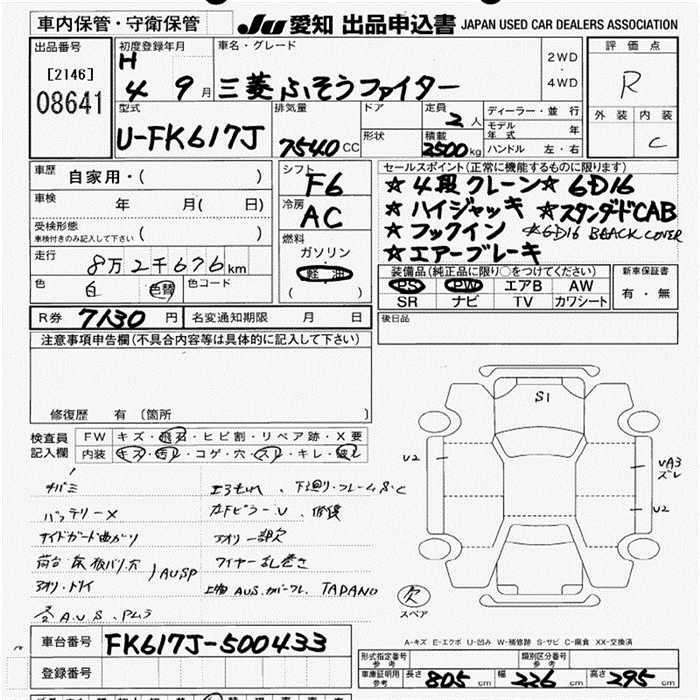 車内保管・守衛保管 JU 愛知 出品申込書 JAPAN USED CAR DEALERS ASSOCIATION
出品番号 初度登録年月 車名・グレード 2WD 評価点
[2146] H 4WD R
08641 4 9月 三菱ふそうファイター
型式 排気量 ドア 定員 ディーラー・並行 外装 内装
2人 モデル年式 年
U-FK617J 7540CC 形状 積載 2500kg ハンドル 左・右 C
車歴 自家用・( ) シフト F6 セールスポイント(正常に機能するものに限ります)
☆4段クレーン☆ 6D16
車検 年 月( 日) 冷房 AC ☆ハイジャッキ ☆スタンダードCAB
受検形態 ( ) ☆フックイン ☆6D16 BAACK COVER
車検付きのみ記入して下さい 燃料 ☆エアーブレーキ
走行 8万2千676km ガソリン 装備品(純正品に限り○をつけてください) 新車保証書
色 白 色替 色コード 軽油 PS PW エアB AW 有・無
( ) SR ナビ TV カワシート
R券 7130円 名変通知期限 月 日 後日品
注意事項申告欄(不具合内容等は具体的に記入して下さい)
修復歴 有 〔箇所 〕
S1
検査員 FW キズ・飛石・ヒビ割・リペア跡・X要
記入欄 内装 キズ・汚レ・コゲ・穴・スレ・キレ・破レ
U2 UA3 ズレ
下廻り・フレームS.C
バッテリーX
サイドガード曲がり アオリ一部欠
U2
ワイヤー乱巻き
AUSP
TADANO
欠
スペア
A.U.S.
車台番号 FK617J-500433
A-キズ E-エクボ U-凹み W-補修跡 S-サビ C-腐食 XX-交換済
登録番号 形式指定番号 参考 類別区分番号 参考
車庫証明用 参考 長さ 805cm 幅 226cm 高さ 295cm